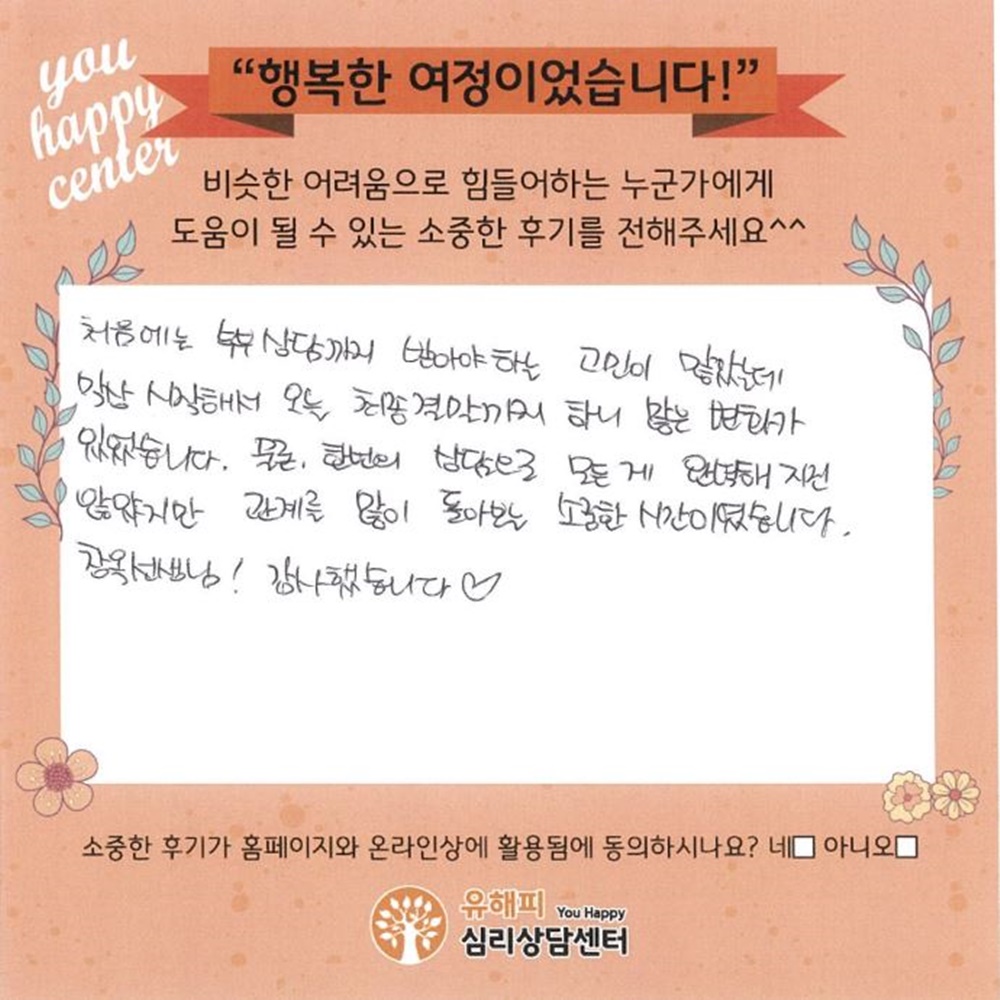 you
happy
center
“행복한 여정이었습니다!”
비슷한 어려움으로 힘들어하는 누군가에게
도움이 될 수 있는 소중한 후기를 전해주세요^^
처음에는 부부상담까지 받아야 하는 고민이 많았는데
막상 시작해서 오늘 최종결말까지 하니 많은 변화가
있었습니다. 물론, 한번의 상담으로 모든 게 완벽해 지진
않았지만 관계를 많이 돌아보는 소중한 시간이였습니다.
창옥선생님! 감사했습니다♡
소중한 후기가 홈페이지와 온라인상에 활용됨에 동의하시나요? 네□ 아니오□
유해피 You Happy
심리상담센터